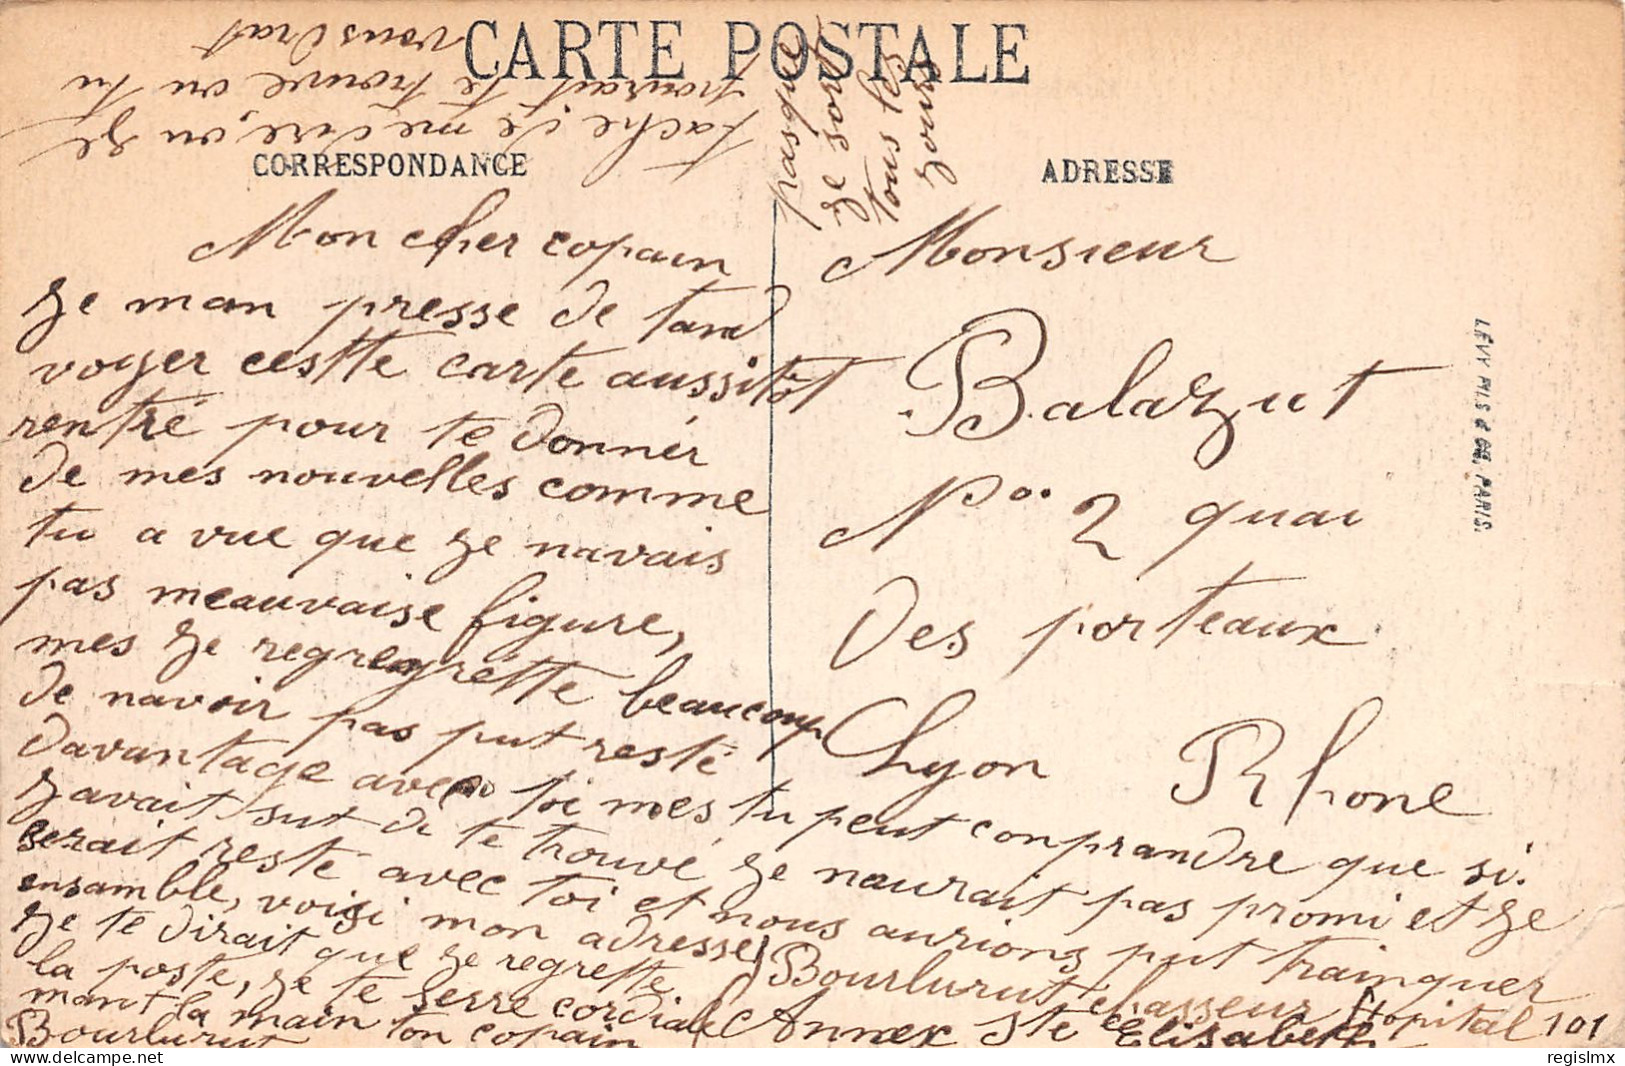 CARTE POSTALE
CORRESPONDANCE
ADRESSE
Mon cher copain
Je man presse de tand
voyer cestte carte aussitot
rentré pour te donnér
de mes nouvelles comme
tu a vue que Je navais
pas meauvaise figure,
mes Je regregrette beaucoup
de navoir pas put resté
davantage avec toi mes tu peut comprandre que si
Javait sut di te trouvé Je naurait pas promi et Je
serait resté avec toi et nous aurions put trainquer
ensamble, voisi mon adresse Bourlurut chasseur Hopital 101
Annex Ste Elisabeth
Je te dirait que Je regrette
la poste, Je te serre cordiale
mant la main ton copain
Bourlurut
tache de me dire, ou Je
pourait te trouve ou tu
vousdrat
pasque
Je sort
tous les
Jours
Monsieur
Balazut
No. 2 quai
des porteaux
Lyon Rhone
LÉVY FILS & CIE, PARIS.
regislmx